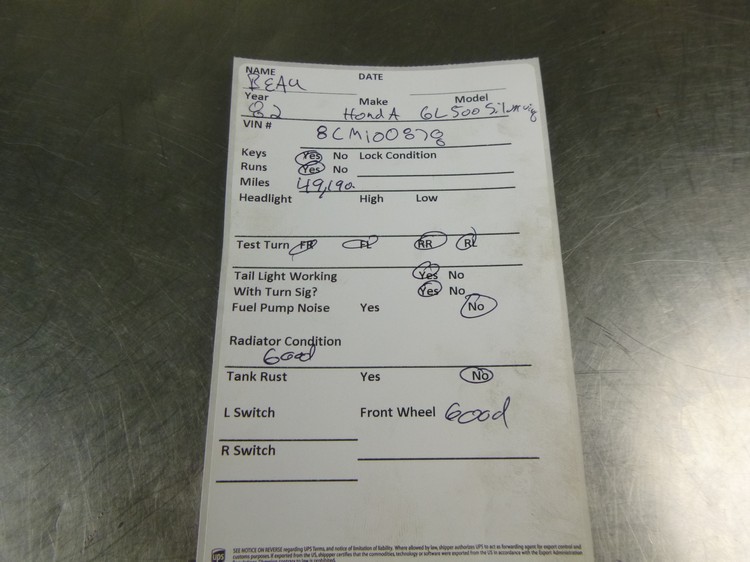 NAME BEAU DATE
Year 82 Make HondA Model GL500 Silverwing
VIN # 8CM100878
Keys Yes No Lock Condition
Runs Yes No
Miles 49,190
Headlight High Low
Test Turn FR FL RR RL
Tail Light Working Yes No
With Turn Sig? Yes No
Fuel Pump Noise Yes No
Radiator Condition
Good
Tank Rust Yes No
L Switch Front Wheel Good
R Switch
ups SEE NOTICE ON REVERSE regarding UPS Terms, and notice of limitation of liability. Where allowed by law, shipper authorizes UPS to act as forwarding agent for export control and
customs purposes. If exported from the US, shipper certifies that the commodities, technology or software were exported from the US in accordance with the Export Administration